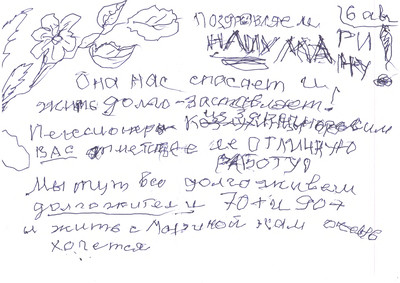 Поздравляем 26 ав
НАШУ МАРИНУ!
Она нас спасает и
жить долго-заставляет!
Пенсионеры просим
ВАС отметьте ее ОТЛИЧНУЮ
РАБОТУ!
Мы тут все долго живем
долгожители 70+ и 90+
и жить с Мариной нам очень
хочется